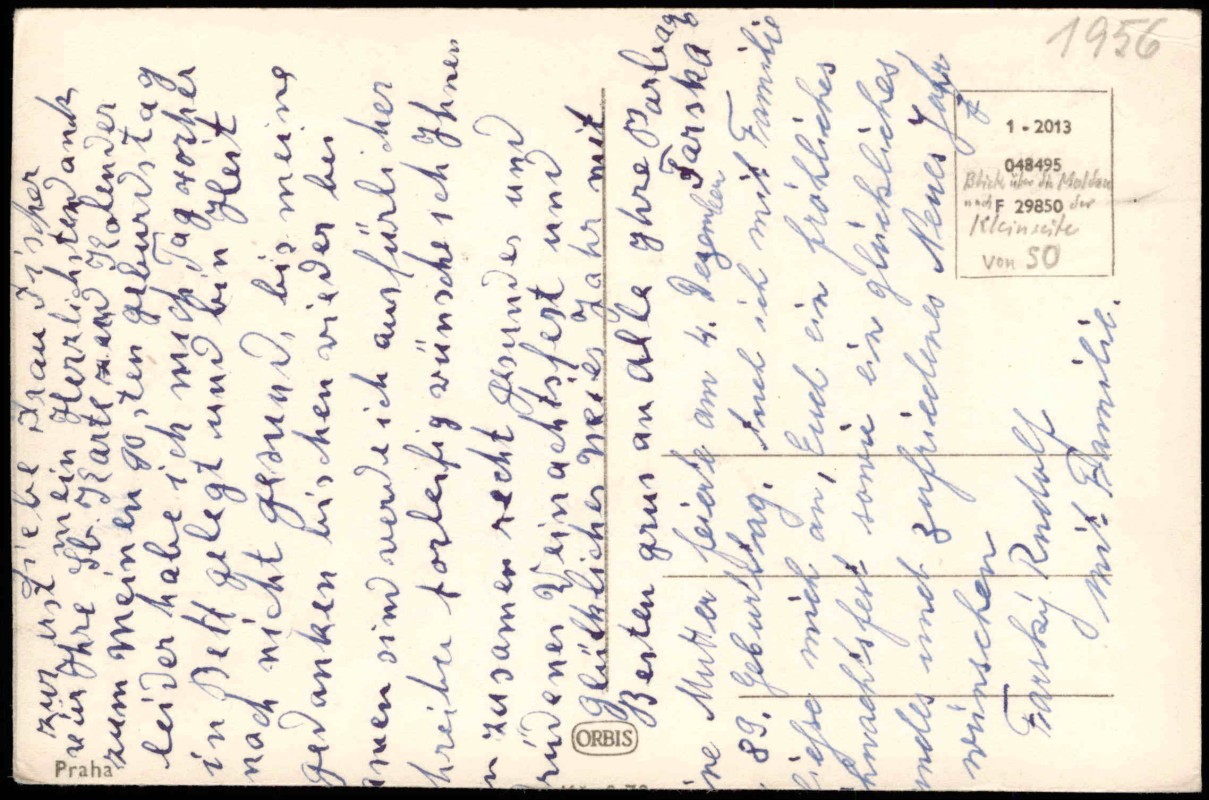 Liebe Frau Fischer
zurerst mein Herzlichsten dank
für Ihre lb. Karte und Kalender
zum meinen 90,ten geburdstag
leider habe ich mich Tag vorher
in Bett gelegt und bin Heit
nach nicht gesund, bis meine
gedanken bischen vieder bei
sind werde ich ausfürlicher
forleifig vünsche ich Ihnen
zusamen recht gesundes und
Veinachtsfest und
Glüklicher Neies Jahr mit
Besten grus an alle Ihre
Farska
Mutter feierte am 4. Dezember
89. Geburtstag. Auch ich mit Familie
schliesse mich an, Euch ein fröhliches
Weihnachtsfest sowie ein glückliches
gesundes und zufriedenes Neues Jahr
wünschen
Farský Rudolf
mit Familie.
1956
1 - 2013
048495
Blick über die Moldau
nach F 29850 der
Kleinseite
von 50
ORBIS
Praha